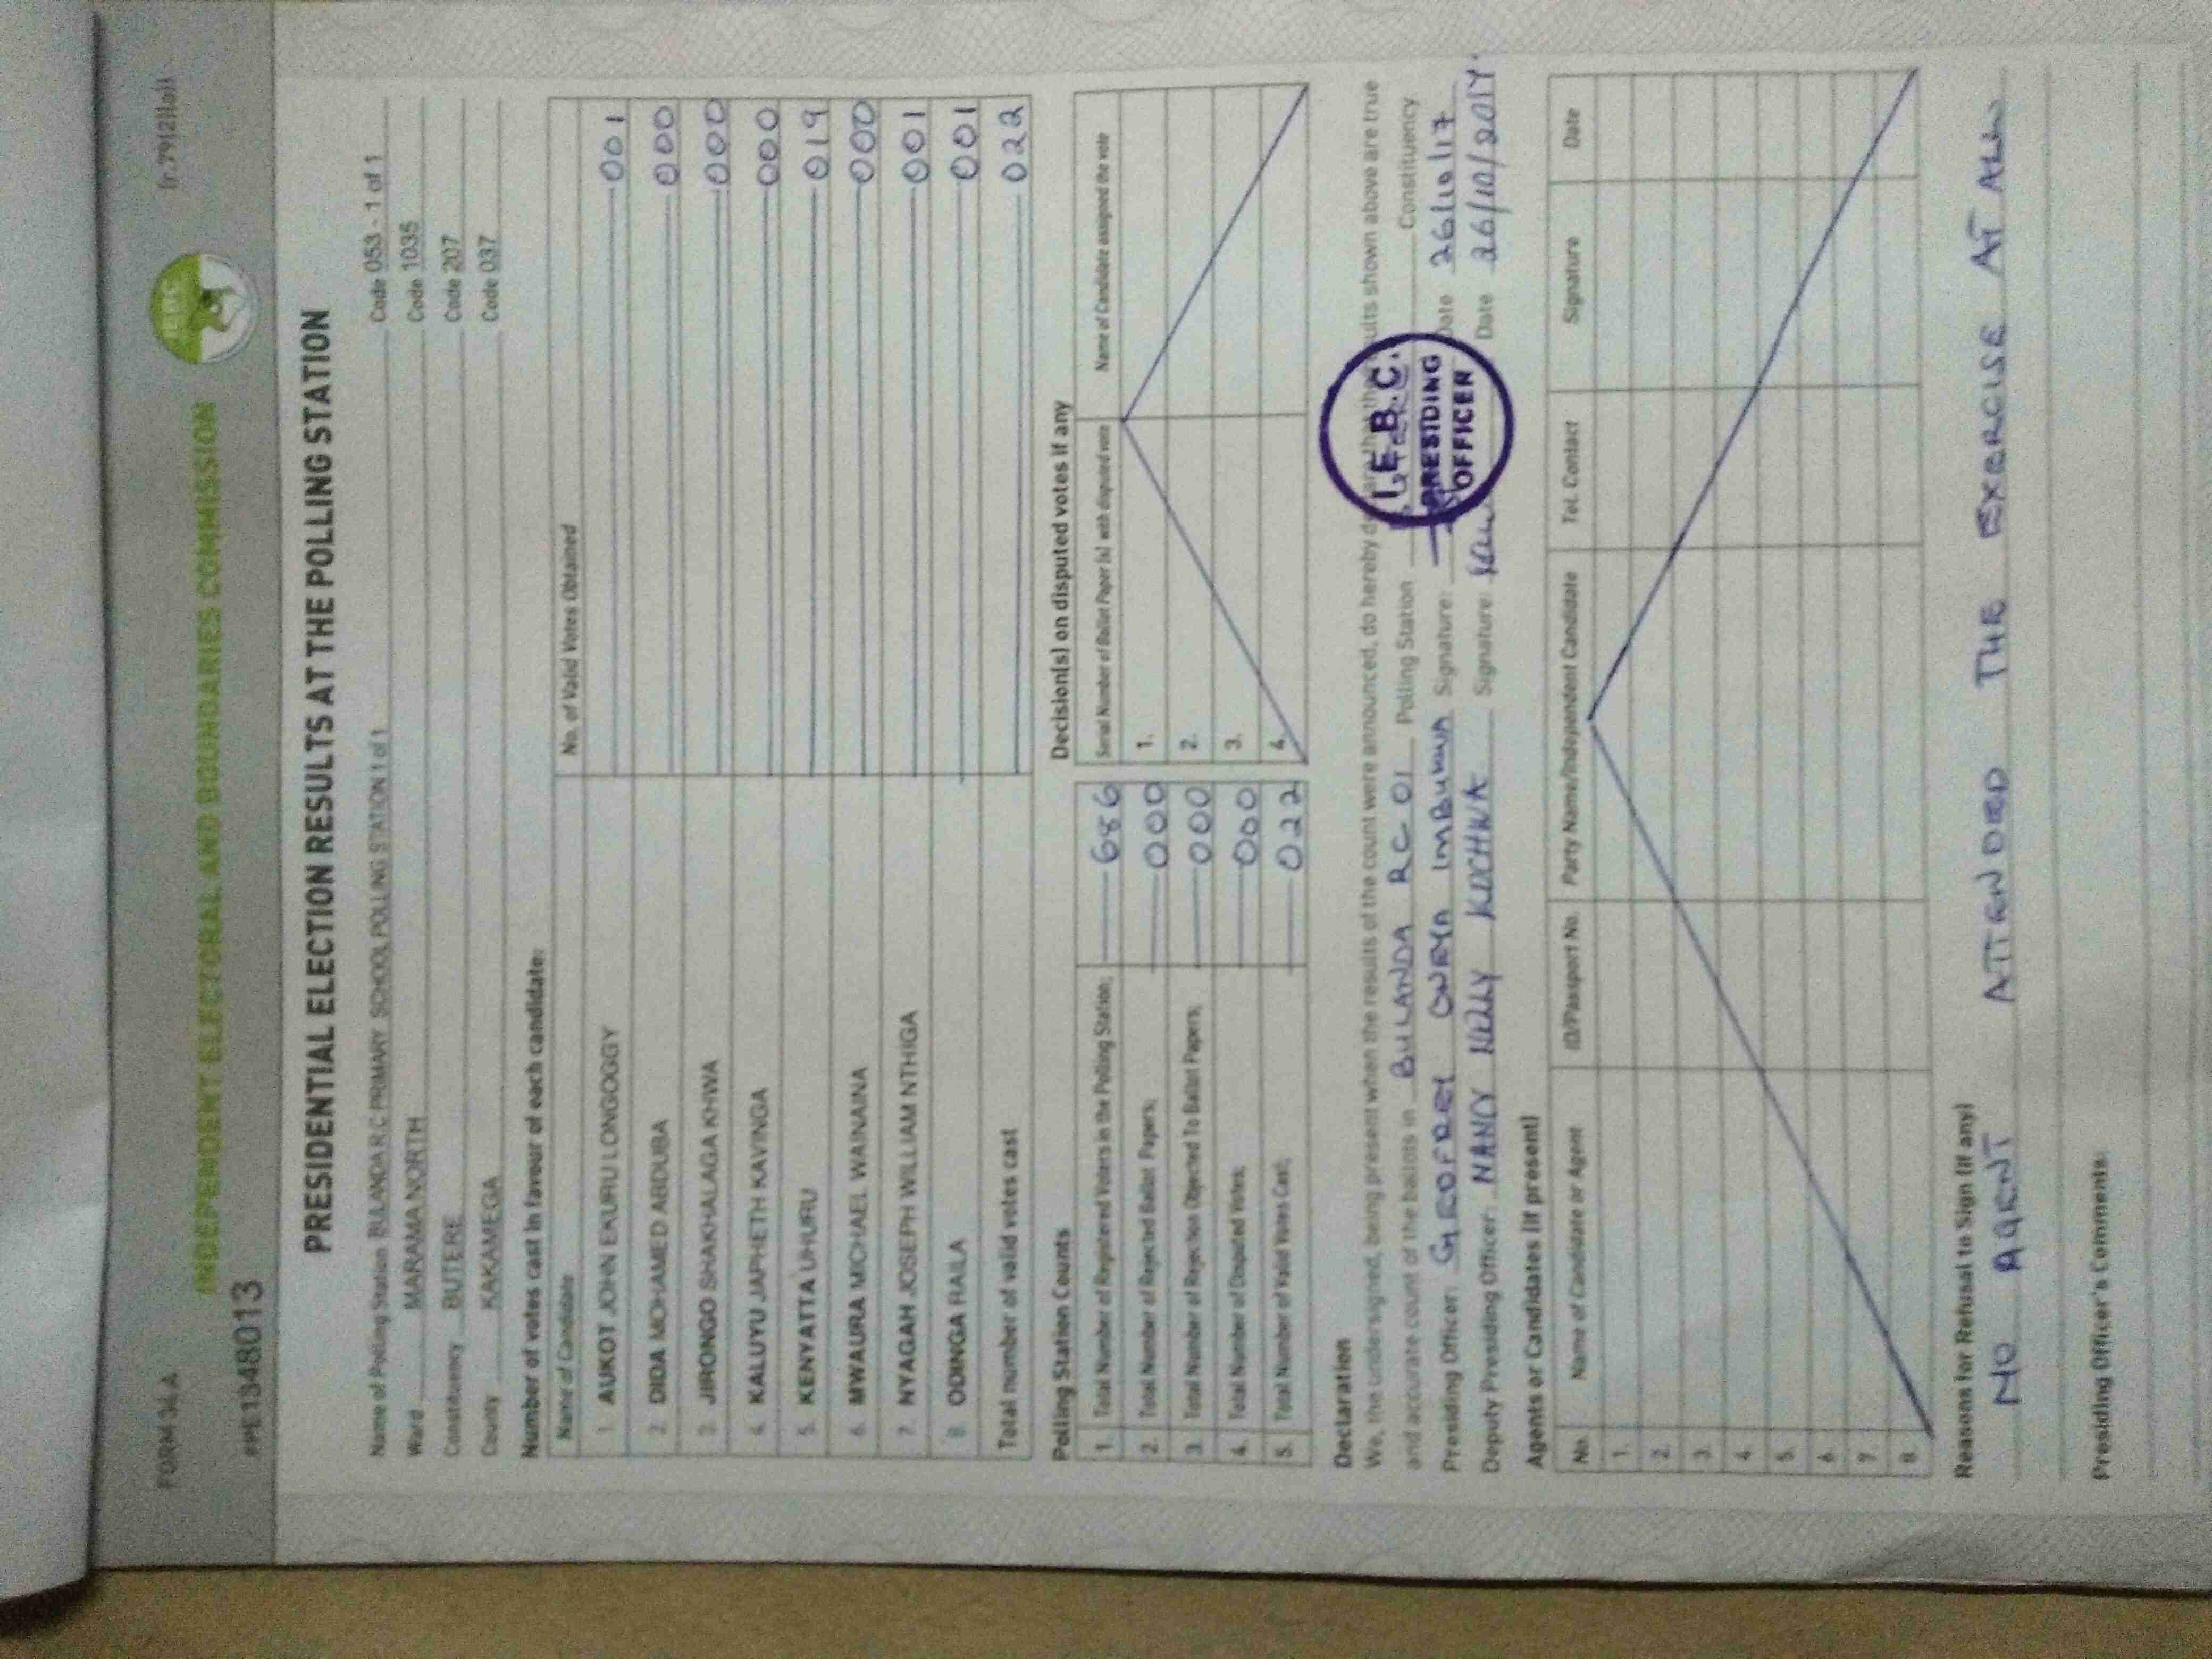 FORM 34A [r.79(2)(a)]
INDEPENDENT ELECTORAL AND BOUNDARIES COMMISSION
IEBC
PRESIDENTIAL ELECTION RESULTS AT THE POLLING STATION
Name of Polling Station BULANDA R.C PRIMARY SCHOOL POLLING STATION 1 of 1 Code 053 - 1 of 1
Ward MARAMA NORTH Code 1035
Constituency BUTERE Code 207
County KAKAMEGA Code 037
Number of votes cast in favour of each candidate:
Name of Candidate No. of Valid Votes Obtained
1. AUKOT JOHN EKURU LONGOGGY 001
2. DIDA MOHAMED ABDUBA 000
3. JIRONGO SHAKHALAGA KHWA 000
4. KALUYU JAPHETH KAVINGA 000
5. KENYATTA UHURU 019
6. MWAURA MICHAEL WAINAINA 000
7. NYAGAH JOSEPH WILLIAM NTHIGA 001
8. ODINGA RAILA 001
Total number of valid votes cast 022
Polling Station Counts
1. Total Number of Registered Voters in the Polling Station; 686
2. Total Number of Rejected Ballot Papers; 000
3. Total Number of Rejection Objected To Ballot Papers; 000
4. Total Number of Disputed Votes; 000
5. Total Number of Valid Votes Cast; 022
Decision(s) on disputed votes if any
Serial Number of Ballot Paper (s) with disputed vote Name of Candidate assigned the vote
1.
2.
3.
4.
Declaration
We, the undersigned, being present when the results of the count were announced, do hereby declare that the results shown above are true
and accurate count of the ballots in BULANDA RC 01 Polling Station Constituency
Presiding Officer: GEOFREY OWEYA IMBUKWA Signature: Date 26/10/17
Deputy Presiding Officer: NANCY NELLY Signature: Date 26/10/2017
I.E.B.C.
PRESIDING
OFFICER
Agents or Candidates (if present)
No. Name of Candidate or Agent ID/Passport No. Party Name/Independent Candidate Tel. Contact Signature Date
1.
2.
3.
4.
5.
6.
7.
8.
Reasons for Refusal to Sign (if any)
NO AGENT ATTENDED THE EXERCISE AT ALL
Presiding Officer's Comments: